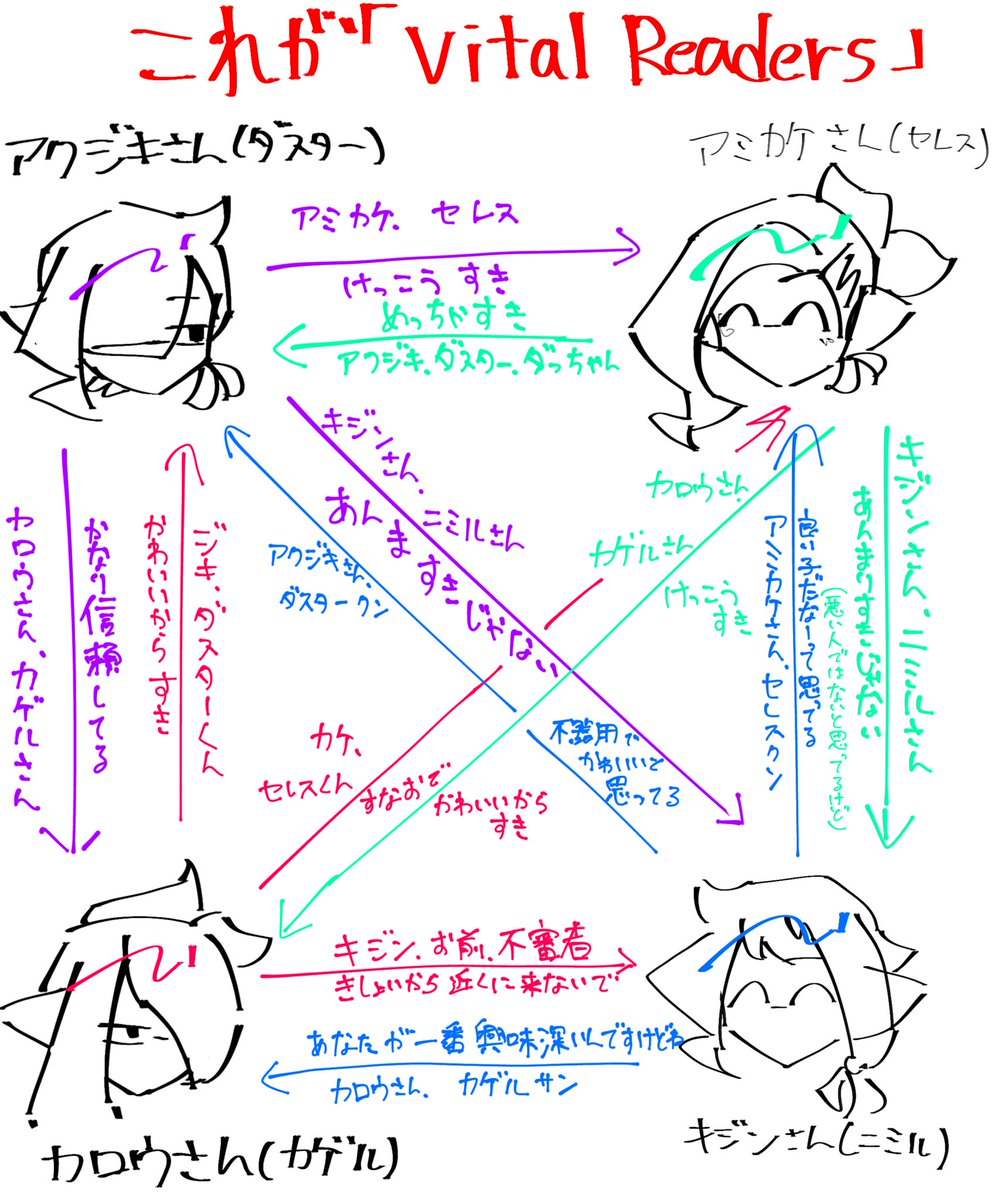 これが「Vital Readers」
アクジキさん(ダスター)
アミカケさん(セレス)
アミカケ、セレス
けっこうすき
めっちゃすき
アクジキ、ダスター、ダっちゃん
キジンさん、
ニミルさん
あんますきじゃない
アクジキさん、
ダスタークン
不器用で
かわいいと
思ってる
カロウさん
カゲルさん
けっこう
すき
カケ、
セレスくん
すなおで
かわいいから
すき
カロウさん、カゲルさん
かなり信頼してる
かわいいからすき
ジキ、ダスターくん
アミカケさん、セレスクン
良い子だなーって思ってる
(悪い人ではないと思ってるけど)
あんまりすきじゃない
キジンさん、ニミルさん
キジン、お前、不審者
きしょいから近くに来ないで
あなたが一番興味深いんですけどね
カロウさん、カゲルサン
カロウさん(カゲル)
キジンさん(ニミル)